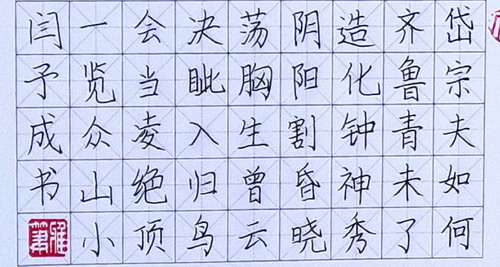 岱宗夫如何
齐鲁青未了
造化钟神秀
阴阳割昏晓
荡胸生曾云
决眦入归鸟
会当凌绝顶
一览众山小
闫予成书